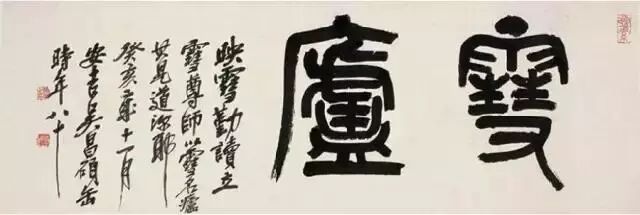 雪廬
映雪勤讀立
雪尊師以雪名廬
其見道深耶
癸亥歲十一月
安吉吳昌碩缶
時年八十